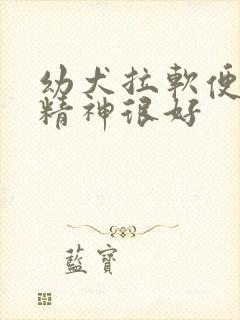 幼犬拉軟便
精神很好
藍寶